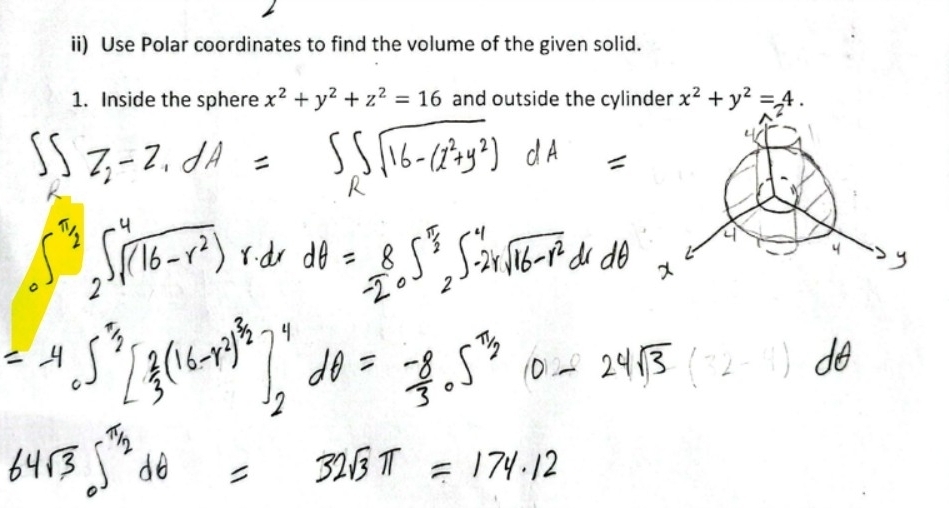 ii) Use Polar coordinates to find the volume of the given solid.
1. Inside the sphere x² + y² + z² = 16 and outside the cylinder x² + y² = 4.
∫∫_R z₂ - z₁ dA = ∫∫_R √(16-(x²+y²)) dA =
₀∫^{π/2} ₂∫⁴ √(16-r²) r·dr dθ = 8/-2 ₀∫^{π/2} ₂∫⁴ -2r√(16-r²) dr dθ
= -4 ₀∫^{π/2} [2/3 (16-r²)^{3/2}]₂⁴ dθ = -8/3 ₀∫^{π/2} (0 - 24√3 dθ
64√3 ₀∫^{π/2} dθ = 32√3 π = 174.12
z
4
4
4
x
y